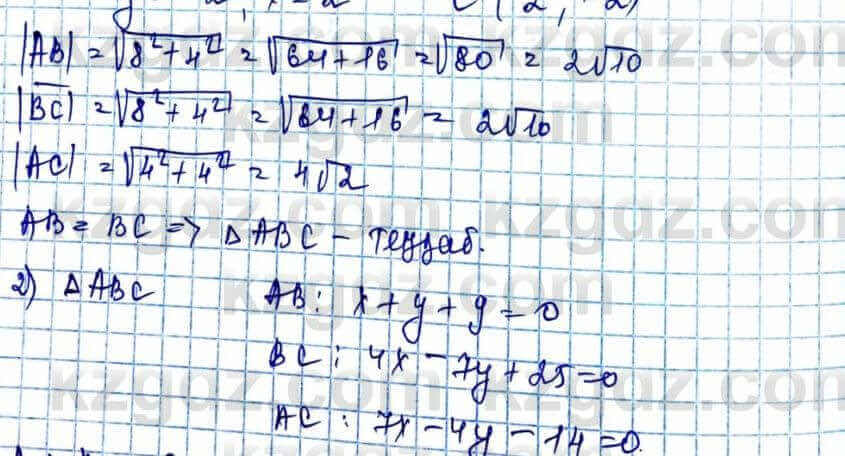 |AB| = √8²+4² = √64+16 = √80 = 2√10
|BC| = √8²+4² = √64+16 = 2√10
|AC| = √4²+4² = 4√2
AB = BC => ΔABC – теңқаб.
2) ΔABC AB: x+y+9=0
BC: 4x-7y+25=0
AC: 7x-4y-14=0
kzgdz.com